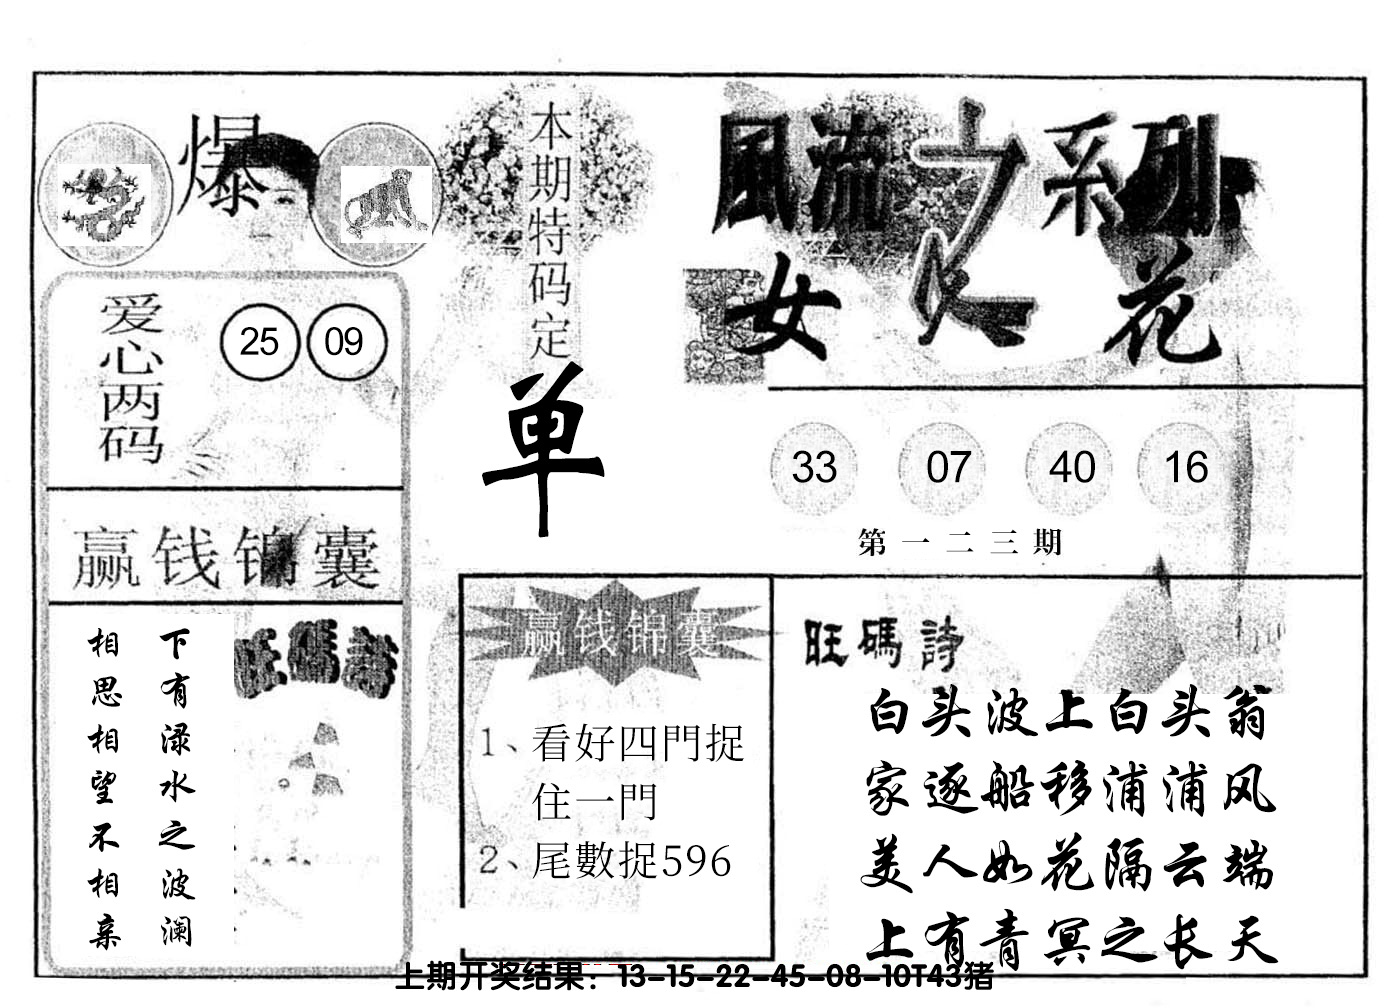 爆
本期特码定
单
風流之系列
女人花
爱心两码
25 09
33 07 40 16
第一二三期
赢钱锦囊
下有渌水之波澜
相思相望不相亲
旺碼詩
赢钱锦囊
1、看好四門捉
住一門
2、尾數捉596
旺碼詩
白头波上白头翁
家逐船移浦浦风
美人如花隔云端
上有青冥之长天
上期开奖结果：13-15-22-45-08-10T43猪